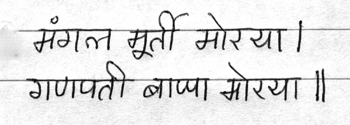 मंगल मूर्ती मोरया।
गणपती बाप्पा मोरया॥